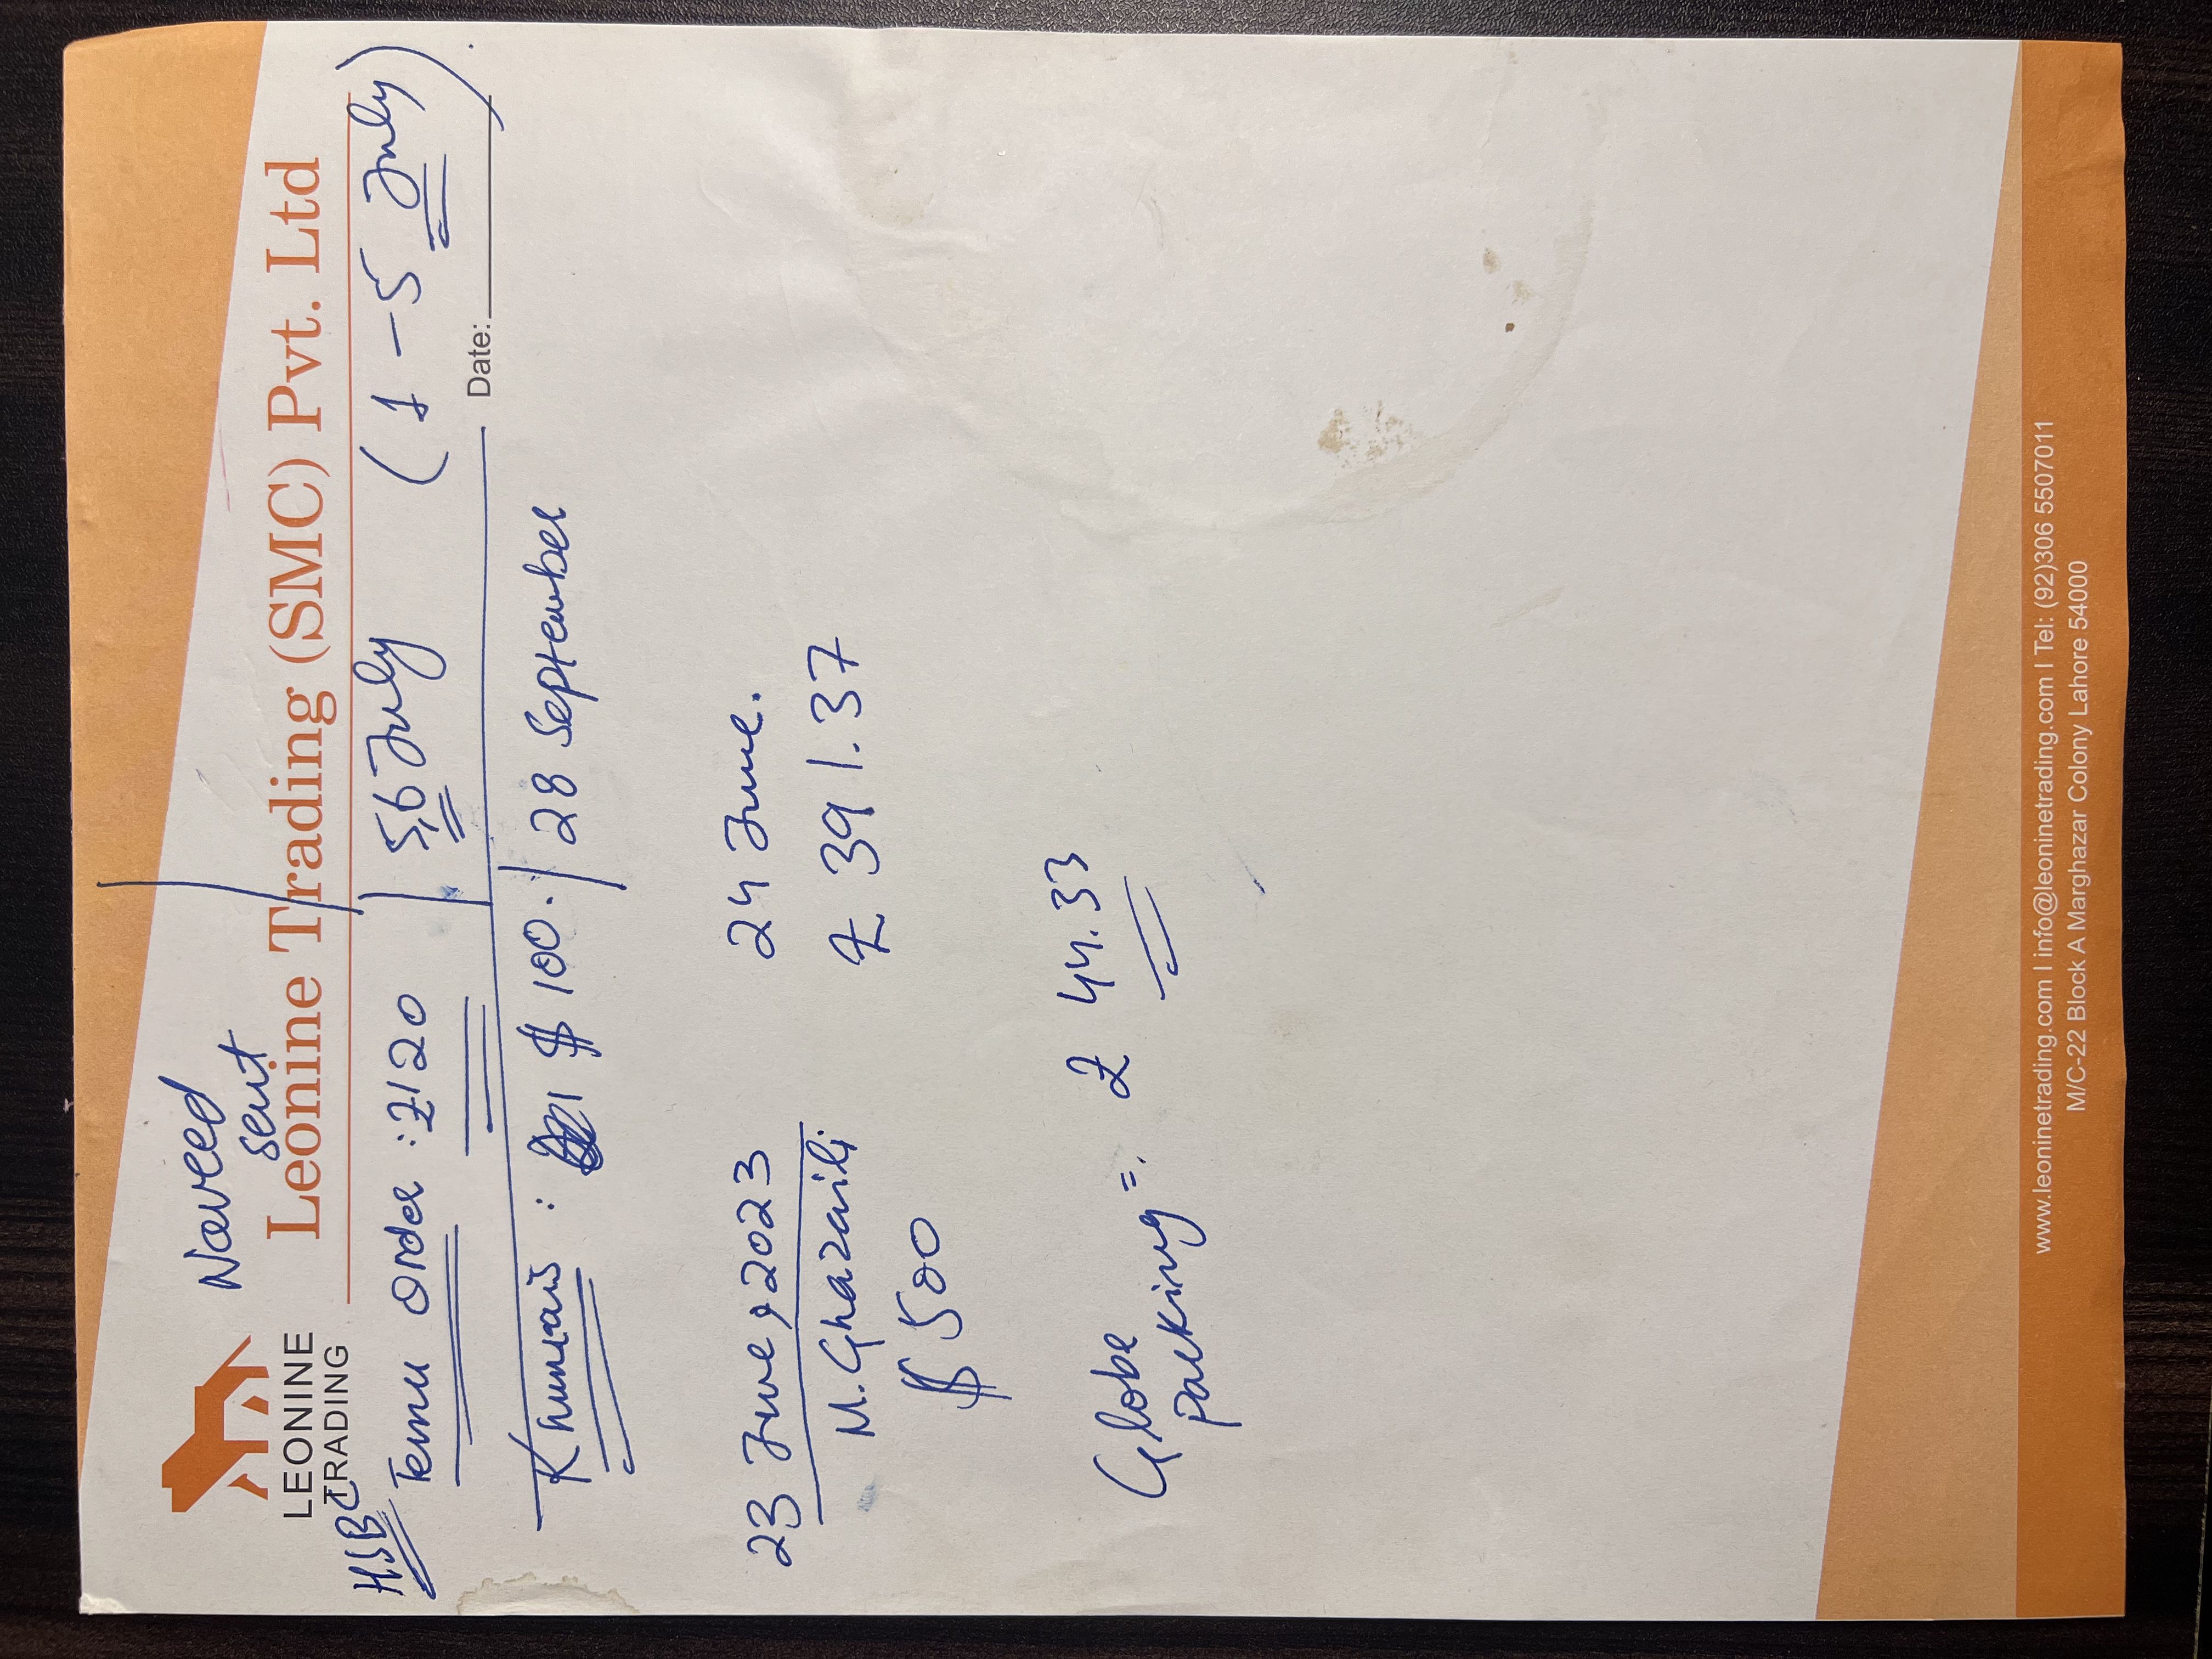 Naveed
sent
LEONINE
TRADING
Leonine Trading (SMC) Pvt. Ltd
HSBC
Temu Order : £120 | 5,6 July (1 – 5 July).
Date:
Khumais : $ 100. | 28 September
23 June, 2023 24 June.
M. Ghazaili £ 391.37
$ 500
Globe
Packing = £ 44.33
www.leoninetrading.com I info@leoninetrading.com I Tel: (92)306 5507011
M/C-22 Block A Marghazar Colony Lahore 54000